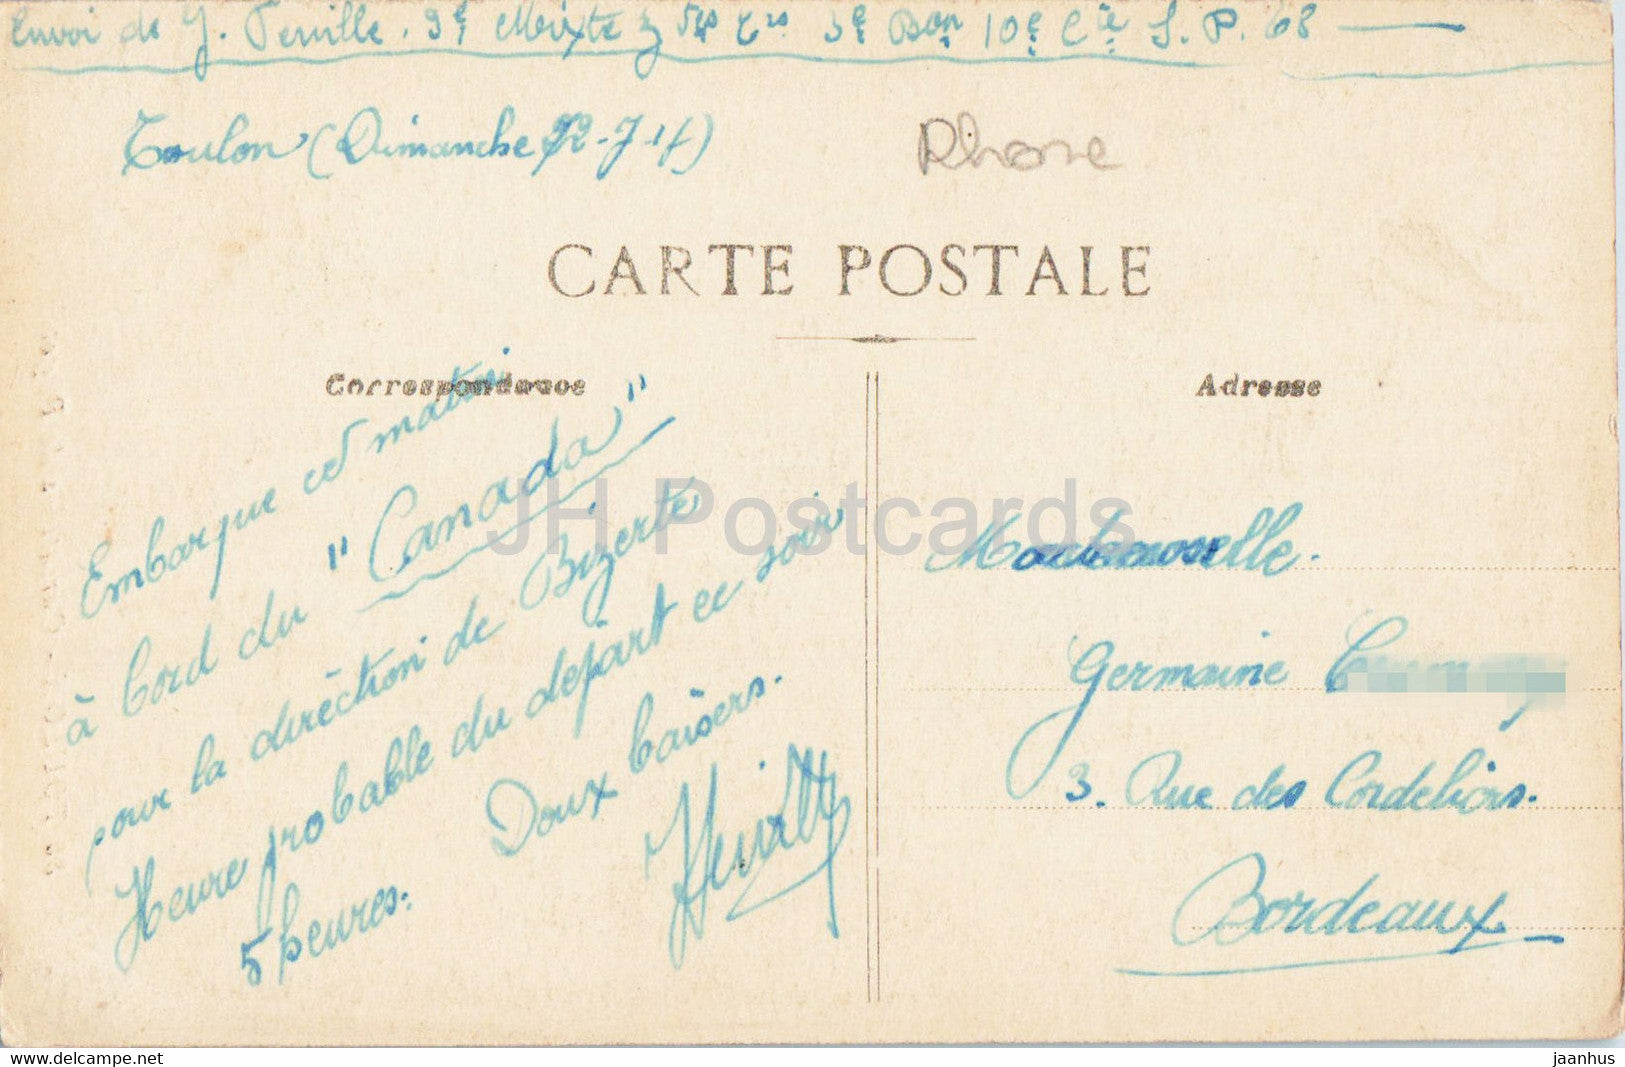 Envoi de J. 9e Mixte Trs 3e Bon 10e Cie S. P. 68
Toulon (Dimanche 22-7-17)
Rhone
CARTE POSTALE
Correspondance
Adresse
Embarque ce matin
à bord du "Canada"
pour la dirèction de Bizerte
Heure probable du départ ce soir
5 heures.
Doux baisers.
Mademoiselle
Germaine
3. Rue des Cordeliers.
Bordeaux
JH Postcards
www.delcampe.net
jaanhus